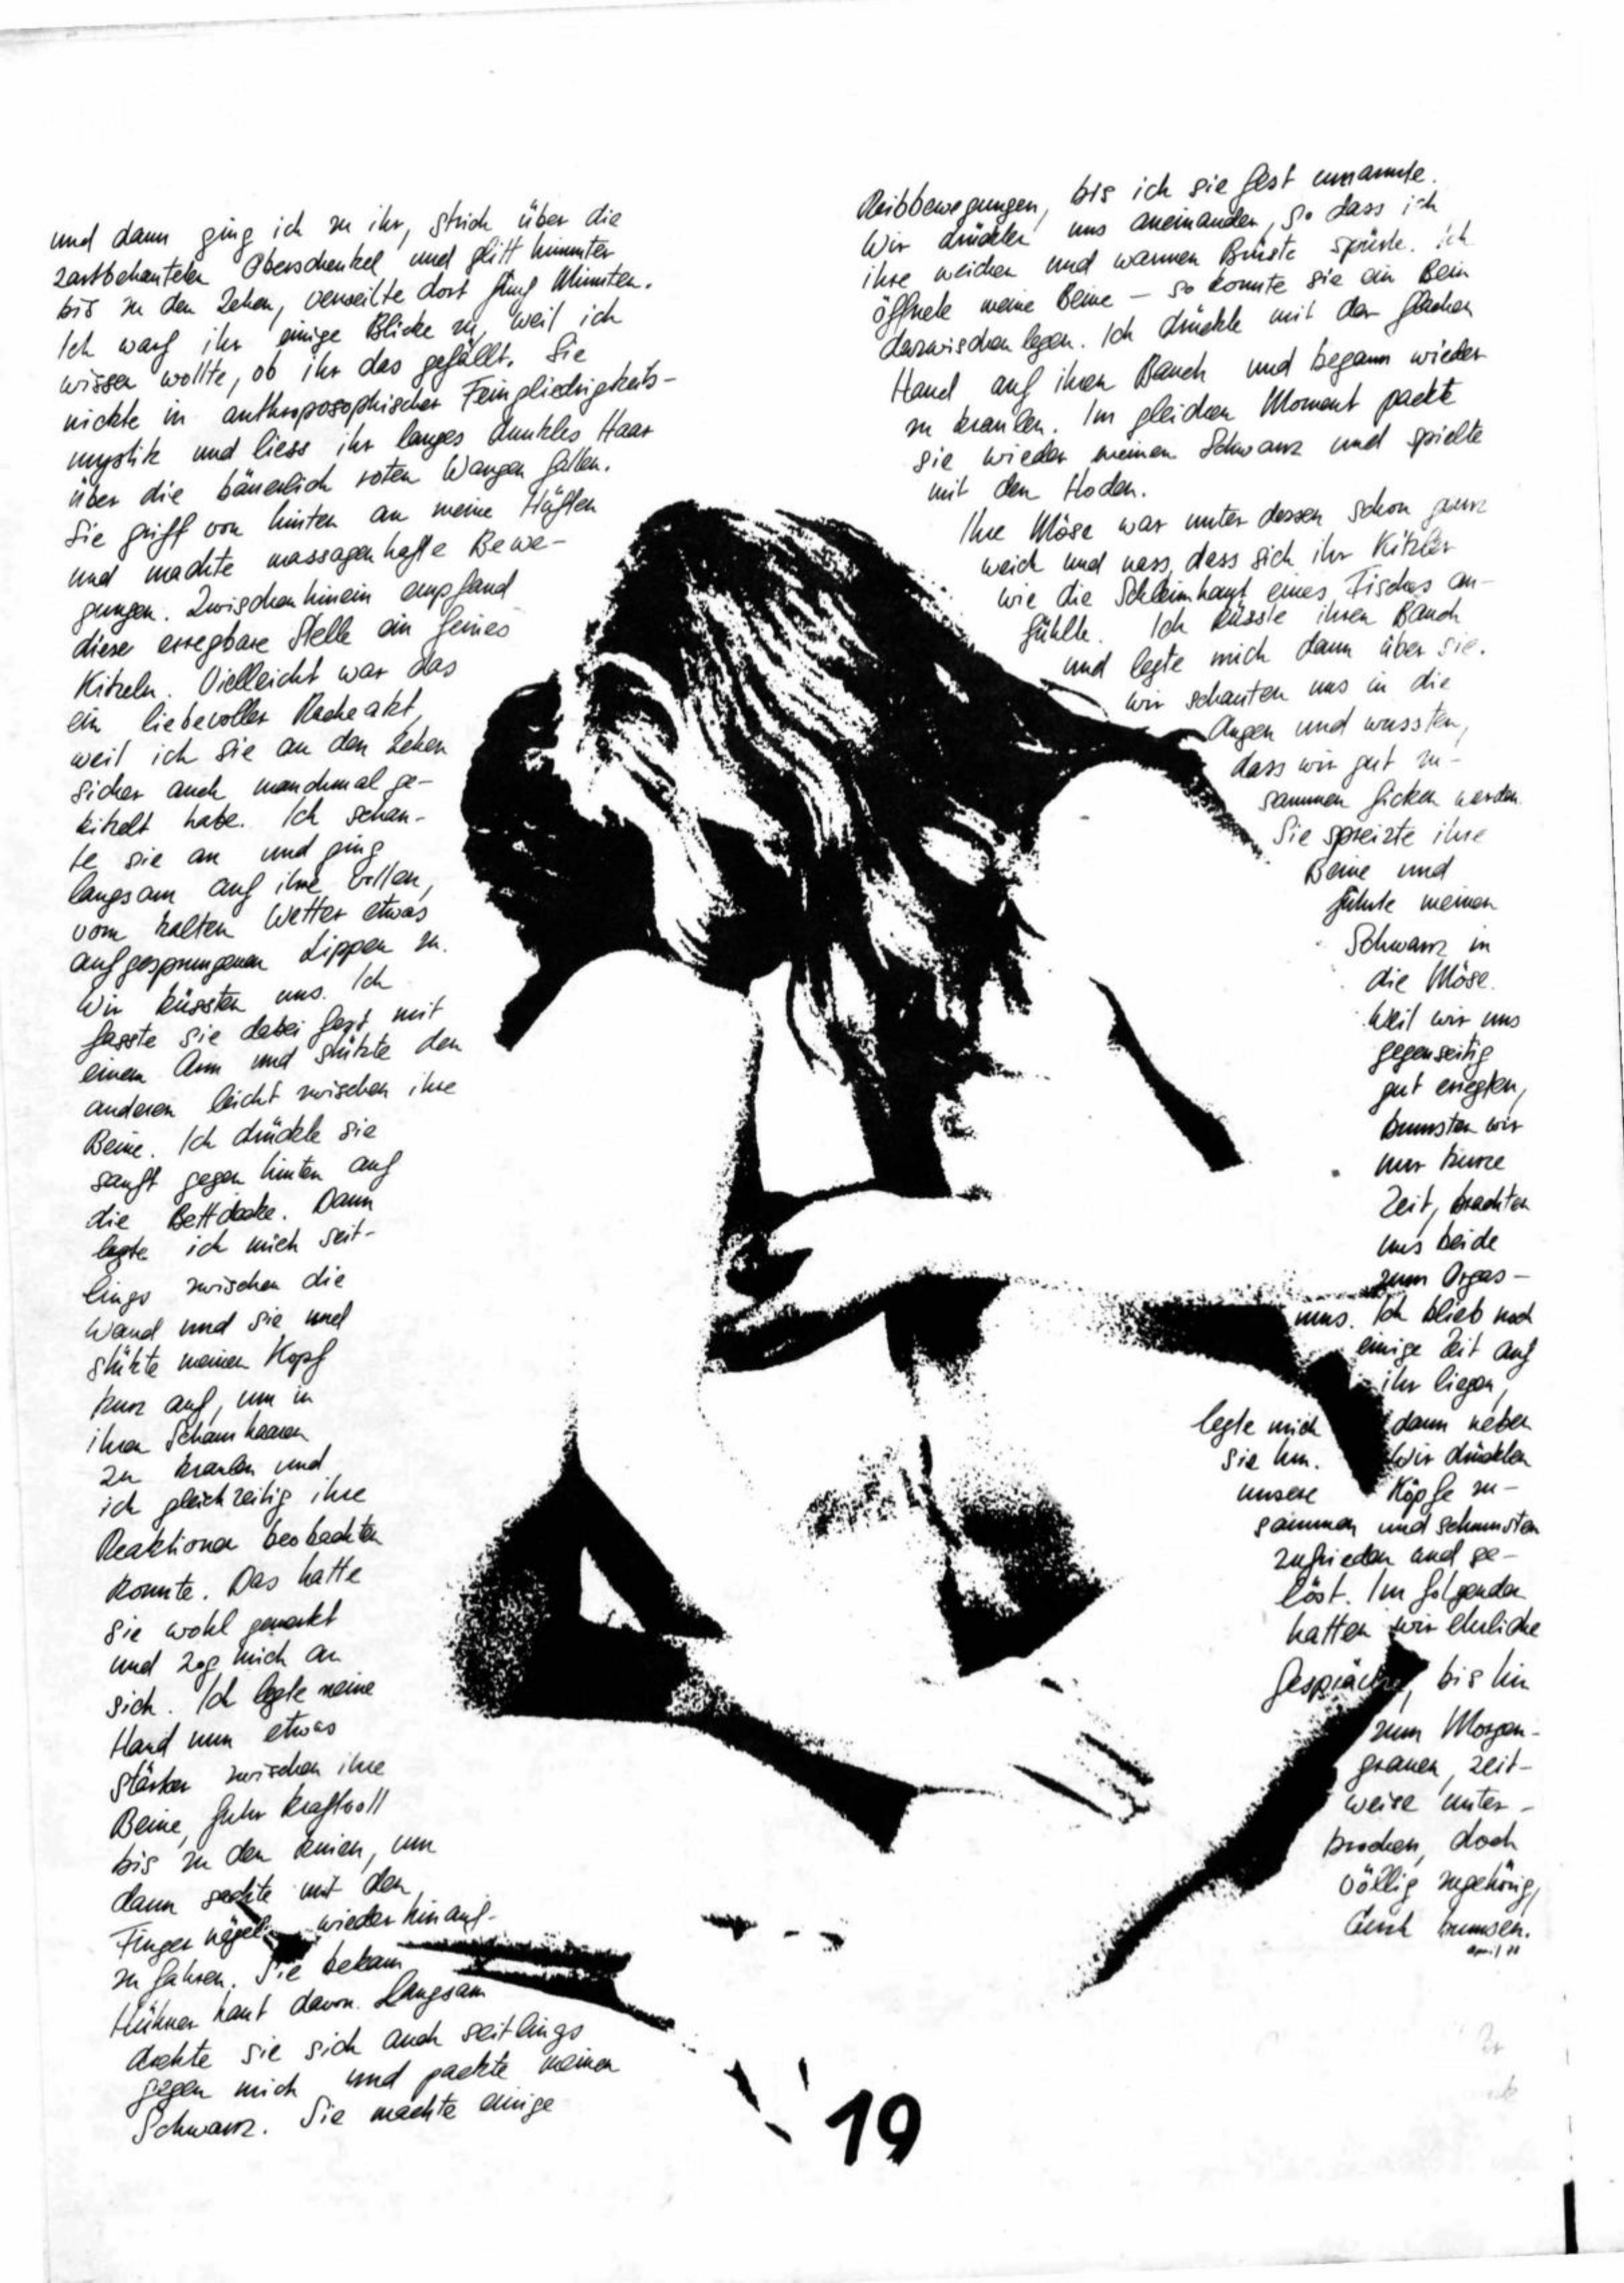 und dann ging ich zu ihr, strich über die
zartbehauteten Oberschenkel und glitt hinunter
bis zu den Zehen, verweilte dort fünf Minuten.
Ich warf ihr einige Blicke zu, weil ich
wissen wollte, ob ihr das gefällt. Sie
nickte in anthroposophischer Feingliedrigkeits-
mystik und liess ihr langes dunkles Haar
über die bäuerlich roten Wangen fallen.
Sie griff von hinten an meine Hüften
und machte massagenhafte Bewe-
gungen. Zwischenhinein empfand
diese erregbare Stelle ein feines
Kitzeln. Vielleicht war das
ein liebevoller Racheakt,
weil ich sie an den Zehen
sicher auch manchmal ge-
kitzelt habe. Ich schau-
te sie an und ging
langsam auf ihre vollen,
vom kalten Wetter etwas
aufgesprungenen Lippen zu.
Wir küssten uns. Ich
fasste sie dabei fest mit
einem Arm und stützte den
anderen leicht zwischen ihre
Beine. Ich drückte sie
sanft gegen hinten auf
die Bettdecke. Dann
legte ich mich seit-
lings zwischen die
Wand und sie und
stützte meinen Kopf
kurz auf, um in
ihren Schamhaaren
zu kraulen und
ich gleichzeitig ihre
Reaktionen beobachten
konnte. Das hatte
sie wohl gemerkt
und zog mich an
sich. Ich legte meine
Hand nun etwas
stärker zwischen ihre
Beine, fuhr kraftvoll
bis zu den Knien, um
dann sachte mit den
Fingernägeln wieder hinauf-
zu fahren. Sie bekam
Hühnerhaut davon. Langsam
drehte sie sich auch seitlings
gegen mich und packte meinen
Schwanz. Sie machte einige
Reibbewegungen, bis ich sie fest umarmte.
Wir drückten uns aneinander, so dass ich
ihre weichen und warmen Brüste spürte. Ich
öffnete meine Beine – so konnte sie ein Bein
dazwischen legen. Ich drückte mit der flachen
Hand auf ihren Bauch und begann wieder
zu kraulen. Im gleichen Moment packte
sie wieder meinen Schwanz und spielte
mit den Hoden.
Ihre Möse war unterdessen schon ganz
weich und nass, dass sich ihr Kitzler
wie die Schleimhaut eines Fisches an-
fühlte. Ich küsste ihren Bauch
und legte mich dann über sie.
Wir schauten uns in die
Augen und wussten,
dass wir gut zu-
sammen ficken werden.
Sie spreizte ihre
Beine und
führte meinen
Schwanz in
die Möse.
Weil wir uns
gegenseitig
gut erregten,
bumsten wir
nur kurze
Zeit, brachten
uns beide
zum Orgas-
mus. Ich blieb noch
einige Zeit auf
ihr liegen,
legte mich dann neben
sie hin. Wir drückten
unsere Köpfe zu-
sammen und schmusten
zufrieden und ge-
löst. Im folgenden
hatten wir ehrliche
Gespräche, bis hin
zum Morgen-
grauen, zeit-
weise unter-
brochen, doch
völlig zugehörig,
durch bumsen.
19